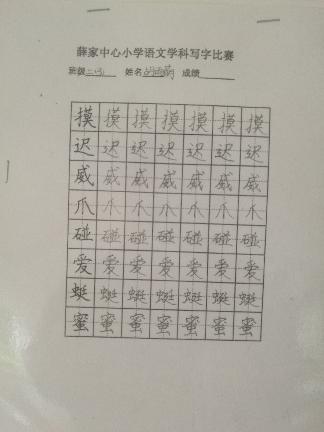 薛家中心小学语文学科写字比赛
班级二(3) 姓名 成绩
摸摸摸摸摸摸摸
迟迟迟迟迟迟迟
威威威威威威威
爪爪爪爪爪爪爪
碰碰碰碰碰碰碰
爱爱爱爱爱爱爱
蜓蜓蜓蜓蜓蜓蜓
蜜蜜蜜蜜蜜蜜蜜